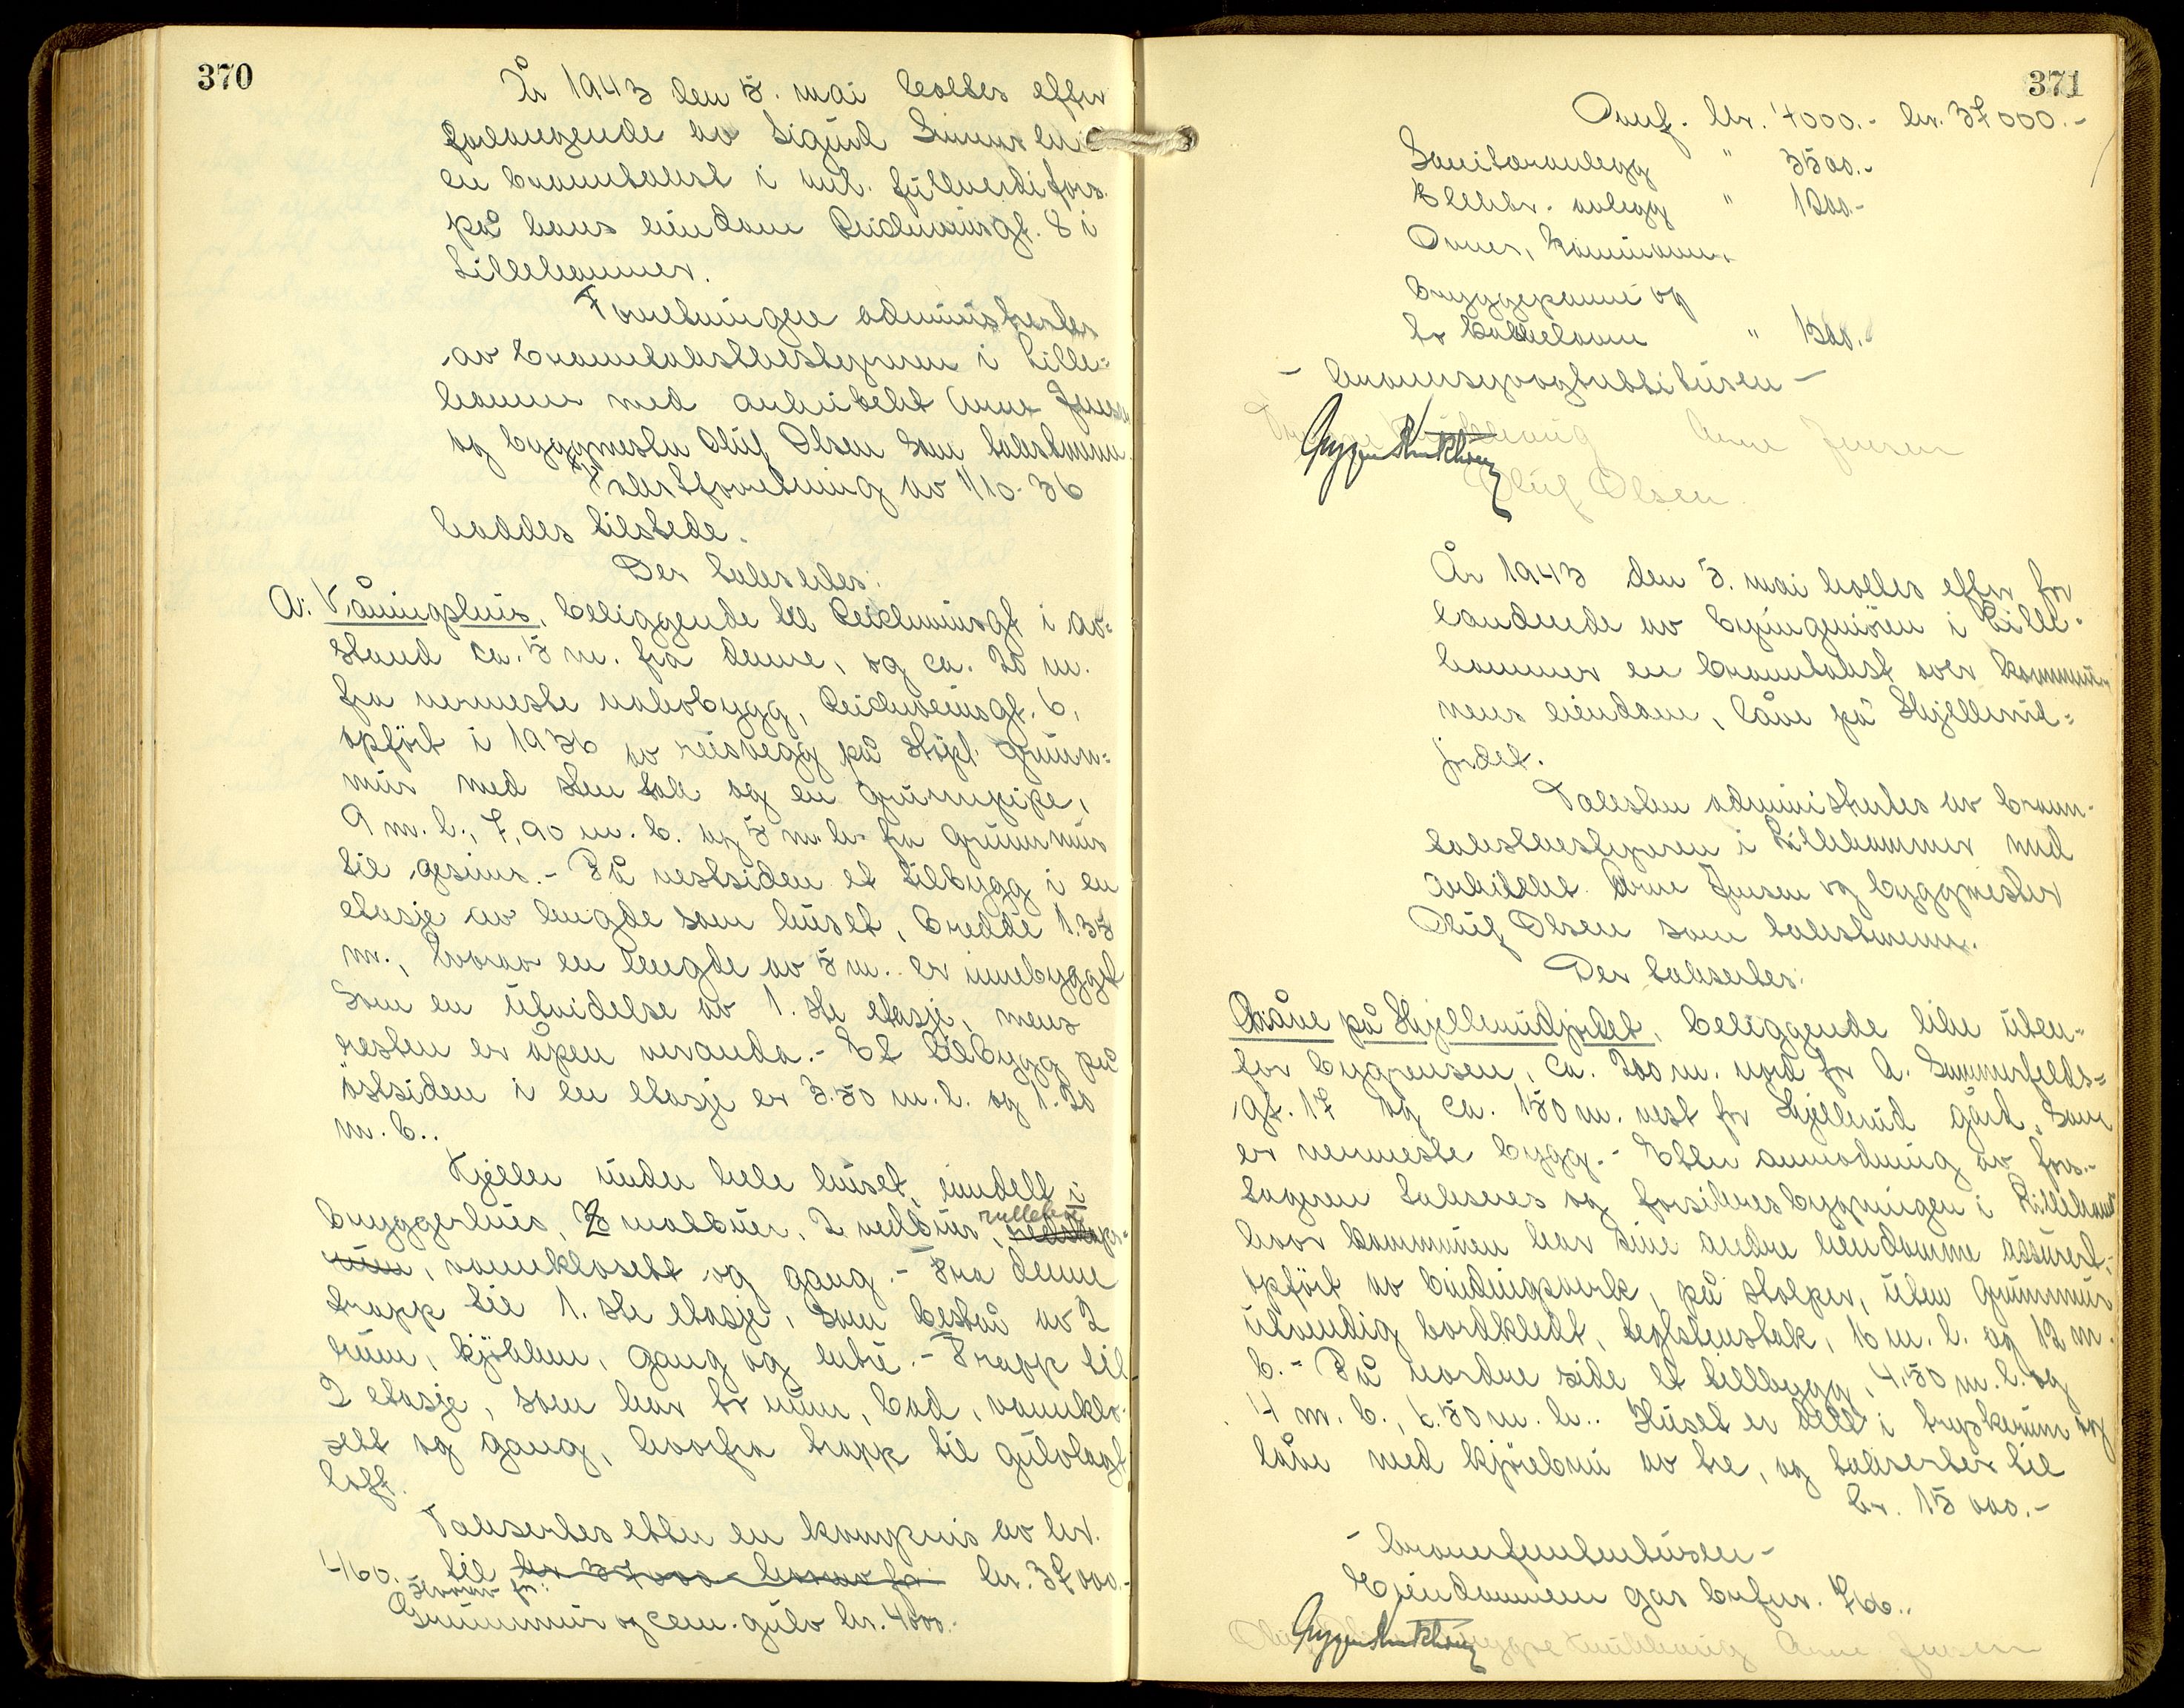 370
År 1943 den 5. mai holtes efter
forlangende av Sigurd
en branntakst i hnh. fullverdifors.
på hans eiendom Reichweinsgt. 8 i
Lillehammer.
Forretningen administrertes
av branntakstbestyreren i Lille=
hammer med arkitekt Arne Jensen
og byggmester Oluf Olsen som takstmenn.
Takstforretning av 1/10-36
haddes tilstede.
Der takseredes:
A: Våningshus, beliggende til Reichweinsgt i av=
stand ca. 5 m. fra denne, og ca. 20 m.
fra nermeste nabobygg, Reichweinsgt. 6,
opført i 1936 av reisvegg på støpt grunn=
mur med sten tak og en grunnpipe,
9 m. l., 7,90 m. b. og 5 m. h. fra grunnmur
til gesims. - På vestsiden et tilbygg i en
etasje av lengde som huset, bredde 1.35
m., hvorav en lengde av 5 m. er innebygget
som en utvidelse av 1. ste etasje, mens
resten er åpen veranda. - Et tilbygg på
østsiden i en etasje er 3.50 m. l. og 1.20
m. b..
Kjeller under hele huset, inndelt i
bryggerhus, 2 matbuer, 2 vedbuer, rullebu
redskaps=
rum, vannklosett og gang. - Fra denne
trapp til 1. ste etasje, som består av 2
rum, kjøkken, gang og entre. - Trapp til
2 etasje, som har tr rum, bad, vannklo-
sett og gang, hvorfra trapp til gulvlagt
loft.
Taksertes etter en kampris av kr.
460.- til kr 37000 - hvorav for kr. 37000.-
Hvorav for:
Grunnmur og cem. gulv kr. 4000.-
371
Overf. kr. 4000.- kr. 37000.-
Sanitæranlegg " 3500.-
Elektr. anlegg " 1200.-
Ovner, kaminovn,
bryggepanne og
tr kakkelovn " 1200.-
- brannsynsattituten -
Trygve Arne Jensen
Oluf Olsen.
År 1943 den 5. mai holtes efter for
landende av byingeniøren i Lille-
hammer en branntakst over kommu=
nens eiendom, låve på Skjellerud=
jordet.
Taksten administrertes av brann-
takstbestyreren i Lillehammer med
arkitekt Arne Jensen og byggmester
Oluf Olsen som takstmenn.
Der taksertes:
Låve på Skjellerudjordet, beliggende like uten-
for bygrensen, ca. 200 m. nord for A. Sommerfelds=
gt. 17 og ca. 150 m. vest for Skjellerud gård, som
er nermeste bygg. - Etter anmodning av fors.-
tageren takseres og forsikres bygningen i Lillehammer
hvor kommunen har sine andre eiendomme assurert.
opført av bindingsverk, på stolper, uten grunnmur
utvendig bordkledt, teglstenstak, 16 m. l. og 12 m.
b. - På nordre side et tillbygg, 4.50 m. l. og
4 m. b., 6.50 m. h.. Huset er delt i tryskerum og
låve med kjørebru av tre, og takserter til
kr. 15 000.-
Eiendommen gas brfnr. 766..
Oluf Olsen Trygve Arne Jensen